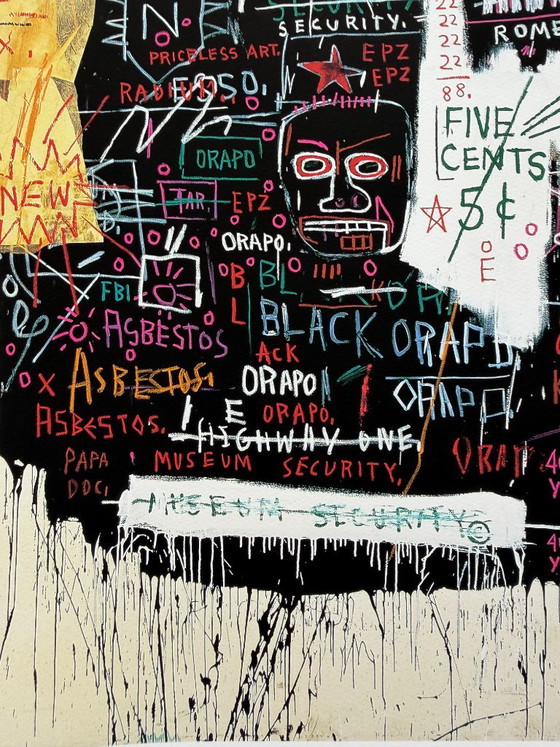 SECURITY.
22
22
22
22
88.
ROME
N.
PRICELESS ART.
EPZ
EPZ
1950.
FIVE
CENTS
5¢
E
ORAPO
NEW
TAR.
EPZ
ORAPO.
FBI
B
L
BL
ASBESTOS
BLACK ORAPO
ACK
X ASBESTOS.
ORAPO
ORAPO.
E
ORAPO.
ASBESTOS.
HIGHWAY ONE.
PAPA
DOC.
MUSEUM SECURITY.
MUSEUM SECURITY ©